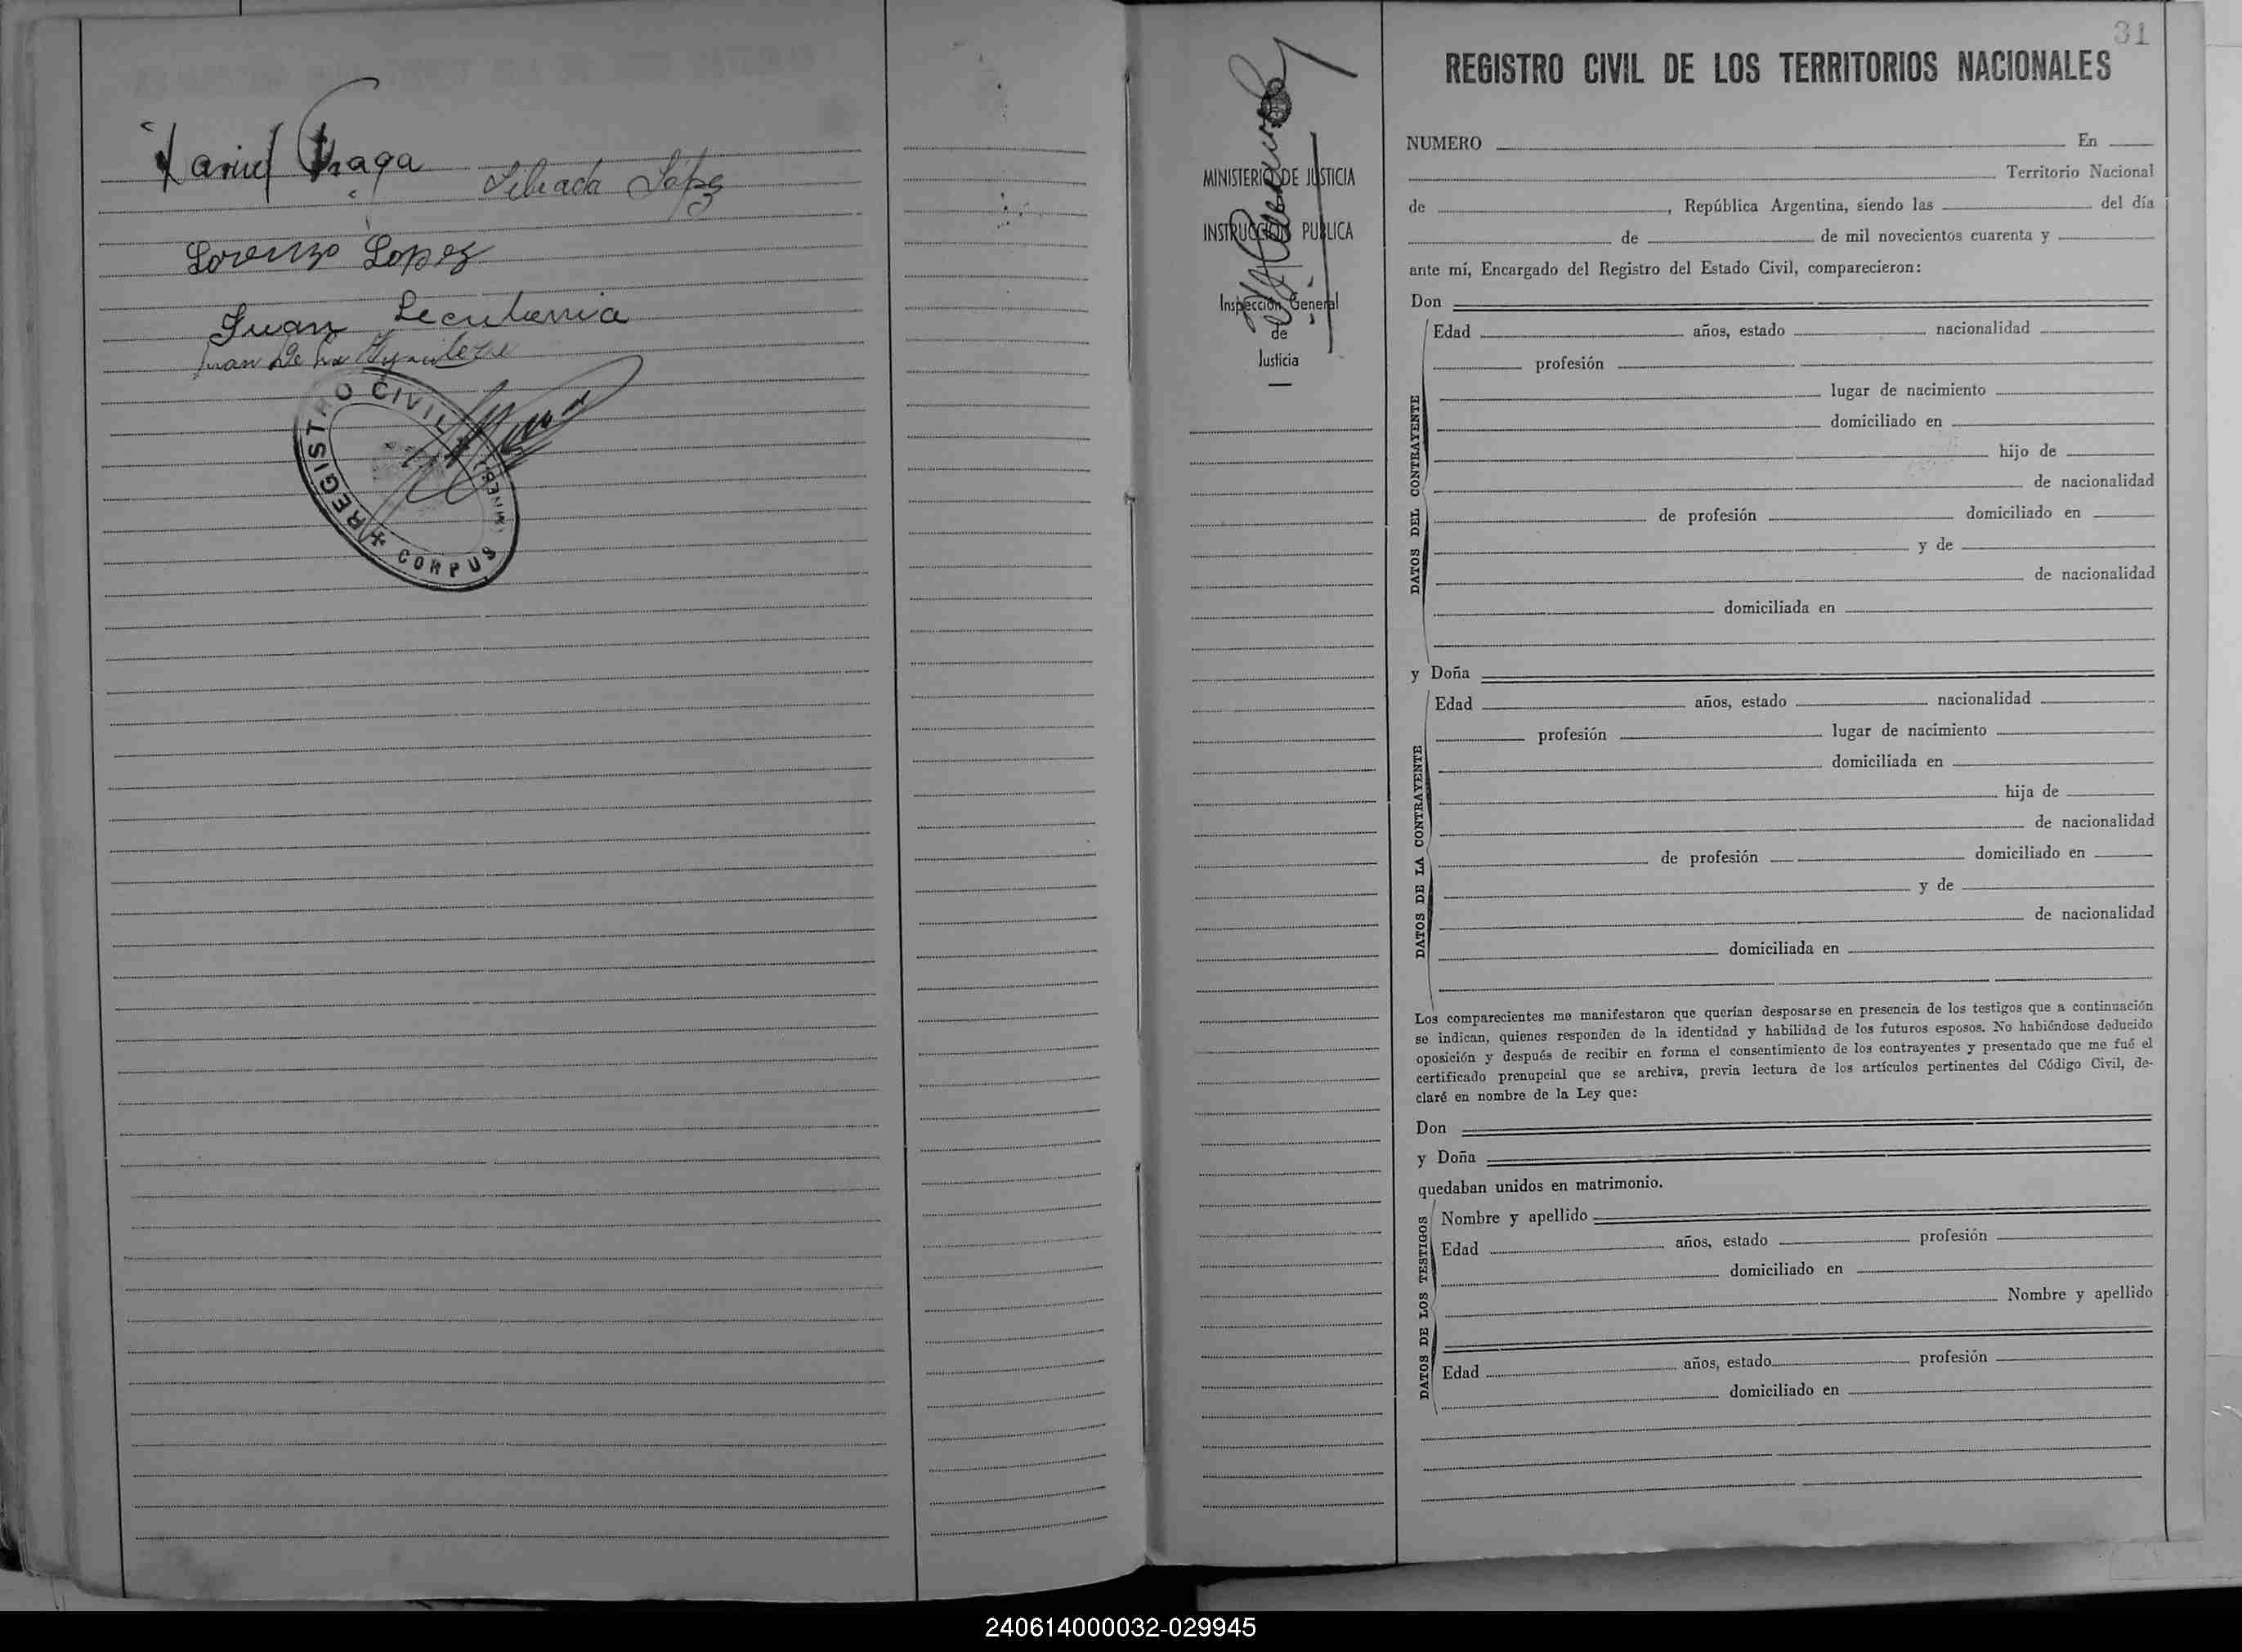 Fraga Liberada López
Lorenzo Lopez
Juan
Juan De La
REGISTRO CIVIL
CORPUS
31
REGISTRO CIVIL DE LOS TERRITORIOS NACIONALES
MINISTERIO DE JUSTICIA
INSTRUCCION PUBLICA
Inspección General
de
Justicia
NUMERO En
Territorio Nacional
de , República Argentina, siendo las del día
de de mil novecientos cuarenta y
ante mí, Encargado del Registro del Estado Civil, comparecieron:
Don
DATOS DEL CONTRAYENTE
Edad años, estado nacionalidad
profesión
lugar de nacimiento
domiciliado en
hijo de
de nacionalidad
de profesión domiciliado en
y de
de nacionalidad
domiciliada en
y Doña
DATOS DE LA CONTRAYENTE
Edad años, estado nacionalidad
profesión lugar de nacimiento
domiciliada en
hija de
de nacionalidad
de profesión domiciliado en
y de
de nacionalidad
domiciliada en
Los comparecientes me manifestaron que querían desposarse en presencia de los testigos que a continuación
se indican, quienes responden de la identidad y habilidad de los futuros esposos. No habiéndose deducido
oposición y después de recibir en forma el consentimiento de los contrayentes y presentado que me fué el
certificado prenupcial que se archiva, previa lectura de los artículos pertinentes del Código Civil, de-
claré en nombre de la Ley que:
Don
y Doña
quedaban unidos en matrimonio.
DATOS DE LOS TESTIGOS
Nombre y apellido
Edad años, estado profesión
domiciliado en
Nombre y apellido
Edad años, estado profesión
domiciliado en
240614000032-029945